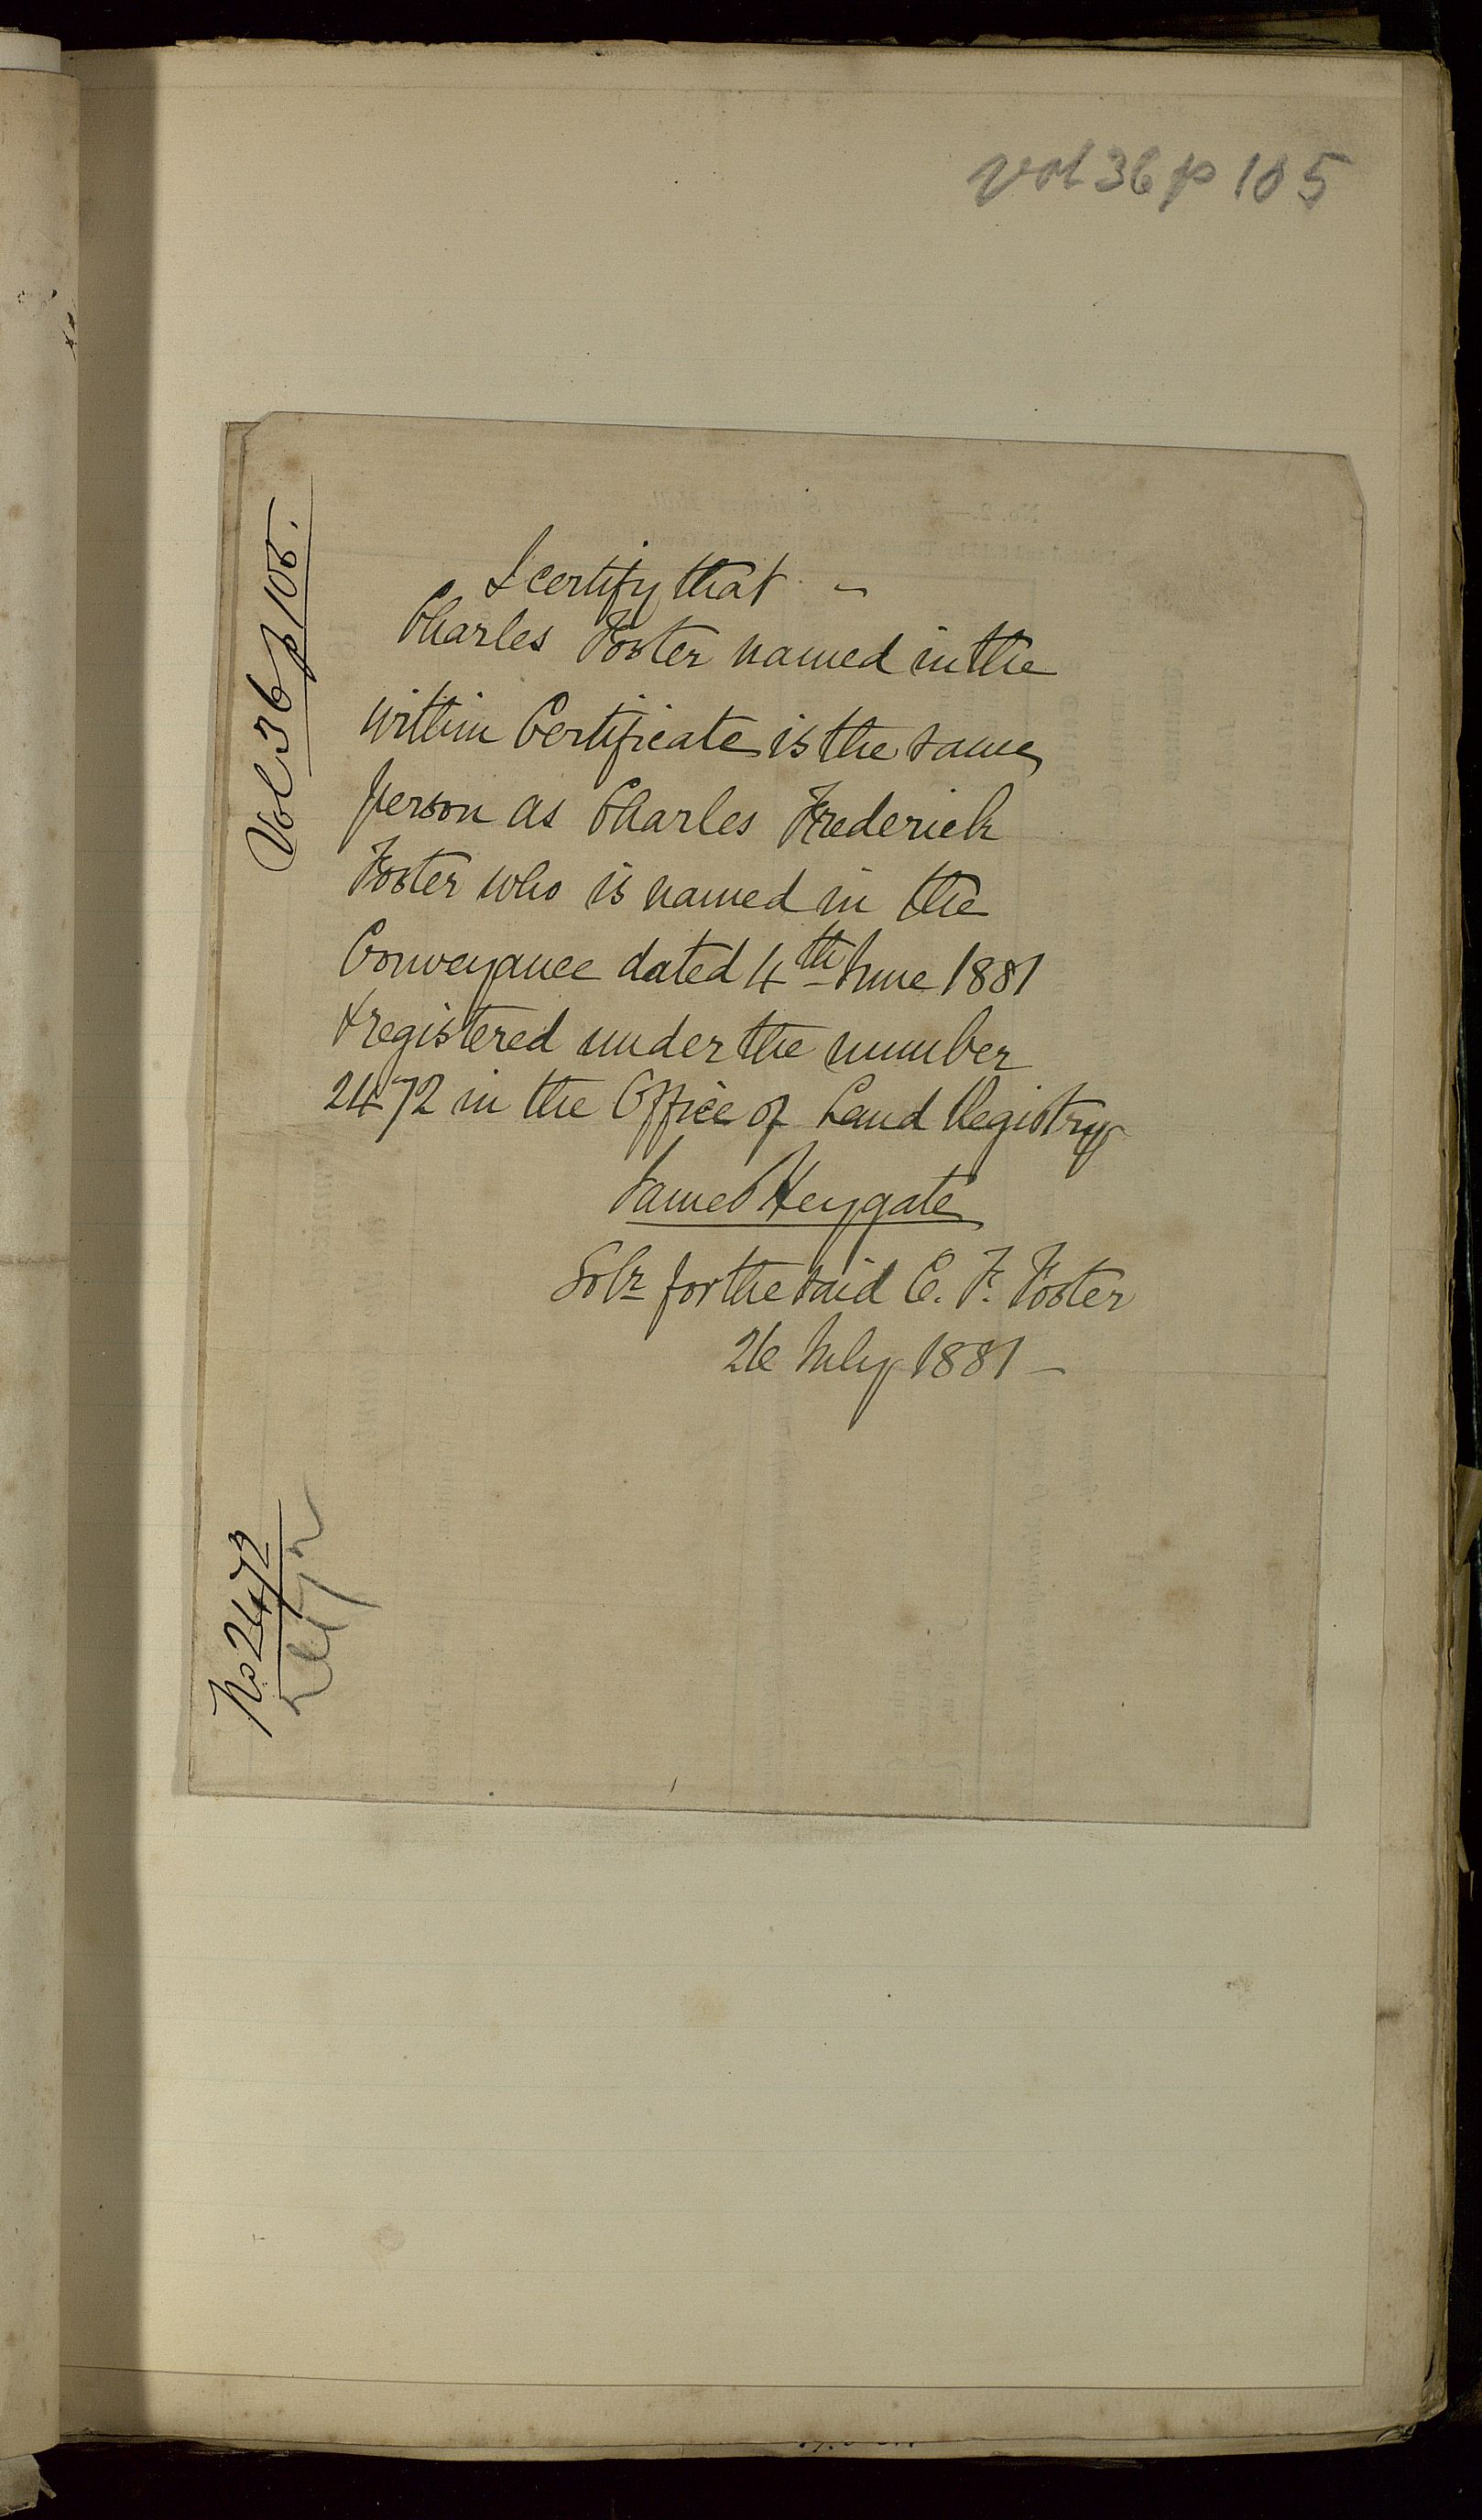 vol 36 p 105
Vol 36 p 105.
I certify that -
Charles Foster named in the
within Certificate is the same
person as Charles Frederick
Foster who is named in the
Conveyance dated 4th June 1881
& registered under the number
2472 in the Office of Land Registry
James Heygate
Solr for the said C. F. Foster
26 July 1881 -
No 2472